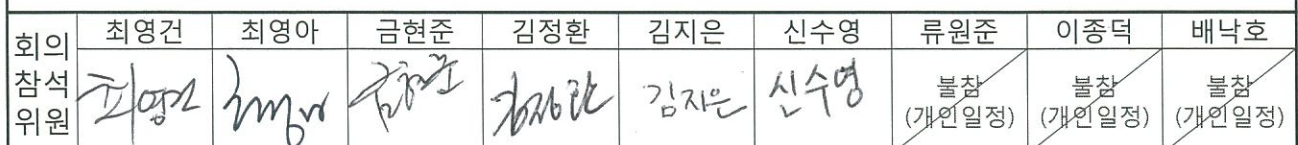 회의 참석 위원
최영건 최영아 금현준 김정환 김지은 신수영 류원준 이종덕 배낙호
최영건 금현준 김정환 김지은 신수영 불참 불참 불참
(개인일정) (개인일정) (개인일정)